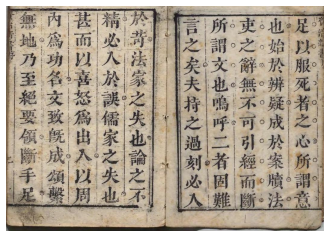 足以服死者之心所謂意
也始於辨疑成於案牘法
吏之辭無不可引經而斷
所謂文也嗚呼二者固難
言之矣夫持之過刻必入
於苛法家之失也論之不
精必入於誤儒家之失也
甚而以喜怒為出入以周
內為功名文致旣成頌繫
無地乃至絕要領斷手足